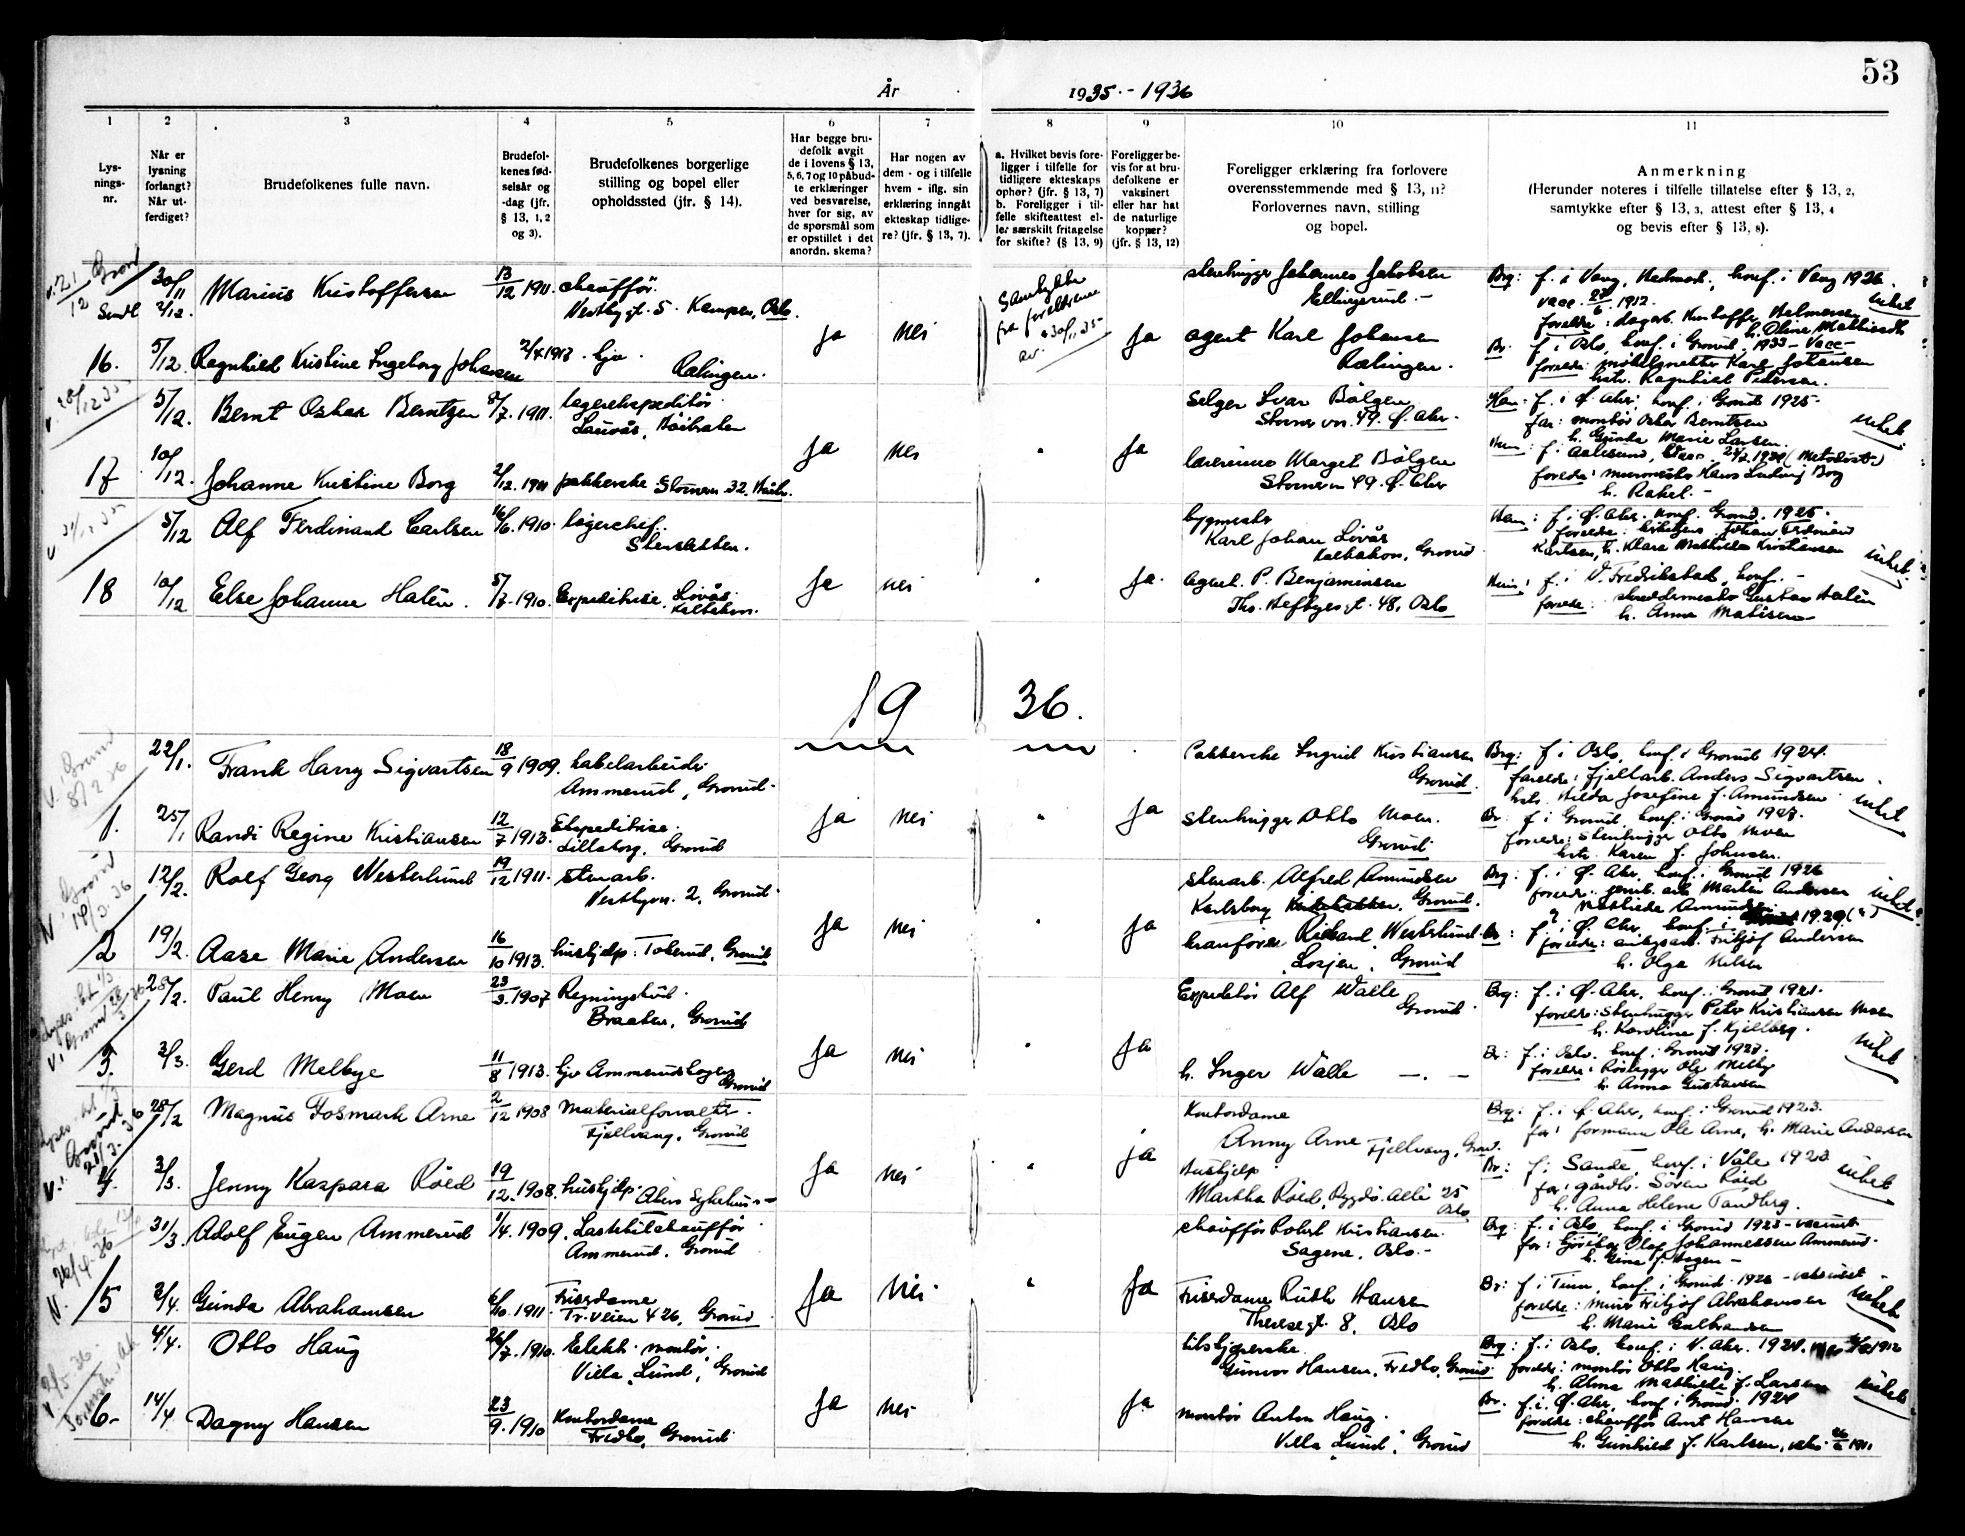 53
År 1935 - 1936
1 2 3 4 5 6 7 8 9 10 11
Lys-
nings-
nr.
Når er
lysning
forlangt?
Når ut-
ferdiget?
Brudefolkenes fulle navn.
Brudefol-
kenes fød-
selsår og
-dag (jfr.
§ 13, 1, 2
og 3).
Brudefolkenes borgerlige
stilling og bopel eller
opholdssted (jfr. § 14).
Har begge bru-
defolk avgit
de i lovens § 13,
5, 6, 7 og 10 påbud-
te erklæringer
ved besvarelse,
hver for sig, av
de spørsmål som
er opstillet i det
anordn. skema?
Har nogen av
dem - og i tilfelle
hvem - iflg. sin
erklæring inngåt
ekteskap tidlige-
re? (jfr. § 13, 7).
a. Hvilket bevis fore-
ligger i tilfelle for
tidligere ekteskaps
ophør? (jfr. § 13, 7)
b. Foreligger i til-
felle skifteattest el-
ler særskilt fritagelse
for skifte? (§ 13, 9)
Foreligger be-
vis for at bru-
defolkene er
vaksinert
eller har hat
de naturlige
kopper?
(jfr. § 13, 12)
Foreligger erklæring fra forlovere
overensstemmende med § 13, 11?
Forlovernes navn, stilling
og bopel.
Anmerkning
(Herunder noteres i tilfelle tillatelse efter § 13, 2,
samtykke efter § 13, 3, attest efter § 13, 4
og bevis efter § 13, 8).
30/11 Marius Kristoffersen 13/12 1911. chauffør.
Vestbygt. 5. Kampen, Oslo.
2/12.
Ja nei Ja
stenhugger Johannes Jakobsen
Ellingsrud. -
Brg: f. i Vang, Hedmark, konf. i Vang 1926.
vacc. 1912.
16. 5/12. Ragnhild Kristine Ingeborg Johansen 2/4 1913. hjv.
Rælingen.
agent Karl Johansen
Rælingen.
Br. f. i Oslo, konf. i Grorud 1933 - vacc -
forelde: møbelsnekker Karl Johansen
hstr. Ragnhild Pedersen.
5/12. Bernt Oskar Berntzen 8/7. 1911. lagerekspeditør
Ja nei " Ja
selger Ivar Bølgen
Storoveien 49. Ø. Aker.
f. i Ø. Aker, konf. i Grorud 1925
far: montør Oskar Berntsen
h. Gunda Marie Larsen.
17 10/12. Johanne Kristine Borg 2/12. 1911 pakkerske
lærerinne Margit Bølgen
49. Ø. Aker
h. Rakel. -
5/12 Alf Ferdinand Carlsen 16/6. 1910. lagerchef.
Stensletten.
Ja nei " Ja.
bygmester
Karl Johan Løvås
Kalbakken, Grorud
f. i Ø. Aker. konf. Grorud. 1925.
Karlsen, h. Klara Mathilda Kristiansen
18 10/12 Else Johanne Halén. 5/7. 1910. Expeditrise. Løvås.
Kalbakken.
agent. P. Benjaminsen
Ths. Heftyesgt. 48, Oslo
f. i V. Fredrikstad, konf. -
forelde: skreddermester Gustav Halén
h. Anna Mathisen
19 36.
22/1. Frank Harry Sigvartsen 18/9 1909. kabelarbeider
Ammerud, Grorud.
Ja nei " Ja
Pakkerske Ingrid Kristiansen
Grorud.
Brg: f. i Oslo, konf. i Grorud 1924.
forelde: fjellarb. Anders Sigvartsen
hstr. Hilda Josefine f. Amundsen
1. 25/1 Randi Regine Kristiansen 12/7 1913. Ekspeditrise.
Lilleborg, Grorud
stenhugger Otto Moen.
Grorud.
Br: f. i Grorud, konf. i Grorud 1927.
forelde: Stenhugger Otto Moen
hstr. Karen f. Johnsen.
12/2. Rolf Georg Westerlund 19/12 1911. stenarb.
Vestbyvn. 2, Grorud
Ja nei " Ja
stenarb. Alfred Amundsen
Karlsborg, Grorud.
Brg: f. i Ø. Aker, konf. i Grorud 1926
Mathilde Amundsen
2 19/2. Aase Marie Andersen 16/10 1913. hushjelp. Tokerud, Grorud
kranfører Richard Westerlund
Losjen, Grorud
Br: f. i Ø. Aker, konf. i 1929 (?)
forelde: anlegsarb. Fritjof Andersen
h. Olga Nilsen
28/2. Paul Henry Moen 23/3. 1907 Regningsbud.
Braaten, Grorud
Ja nei " Ja
Expeditør Alf Walle
Grorud
Brg: f. i Ø. Aker, konf. i Grorud 1921.
forelde: Stenhugger Peter Kristiansen Moen
h. Karoline f. Kjellberg.
3. 3/3. Gerd Melbye 11/8 1913. hjv. Ammerudhagen
Grorud
h. Inger Walle -.-
Br: f. i Oslo. konf. i Grorud 1927.
forelde: Rørlegger Ole Melby
h. Anna Gustavsen
28/2 Magnus Fosmark Arne 2/12 1908 Materialforvalter.
Fjellvang, Grorud
Ja nei " Ja
Kontordame
Anny Arne Fjellvang, Grorud.
Brg: f. i Ø. Aker, konf. i Grorud 1923.
far: formann Ole Arne, h. Marie Andersen
4. 3/3. Jenny Kaspara Røed 19/12. 1908. hushjelp. Akers Sykehus -
Hushjelp
Martha Røed, Bygdø. Allé 25
Oslo
Br: f. i Sande, konf. i Våle 1923
far: gårdbr. Søren Røed
h. Anna Helene Tandberg.
31/3. Adolf Eugen Ammerud 1/4. 1909. Lastebilchauffør
Ammerud. Grorud
Ja Nei. " Ja
chauffør Robert Kristiansen.
Sagene, Oslo. -
Brg: f. i Oslo, konf. i Grorud 1923 - vaccinert
Olaf Johannessen Ammerud.
h. Gina f. Hagen -
5 2/4. Gunda Abrahamsen 6/10. 1911. Friserdame
Tr.veien 426, Grorud
Friserdame Ruth Hansen
Theresesgt. 8, Oslo
Br: f. i Tinn, konf. i Grorud. 1926 - vaksinert -
forelde: murer Fritjof Abrahamsen
h. Marie Gulbrandsen
4/4. Otto Haug 26/7. 1910. Elektr. montør.
Villa "Lund", Grorud
Ja nei Ja
Gunvor Hansen, Fredbo, Grorud
Brg: f. i Oslo, konf. i V. Aker. 1924.
forelde: montør Otto Haug.
h. Alma Mathilde f. Larsen
6- 14/4 Dagny Hansen 23/9. 1910 Kontordame
Fredbo, Grorud
montør Anton Haug.
Villa "Lund", Grorud
Br. f. i. Ø. Aker, konf. i Grorud 1924
forelde: chauffør Arnt Hansen
h. Gunhild f. Karlsen, 1911